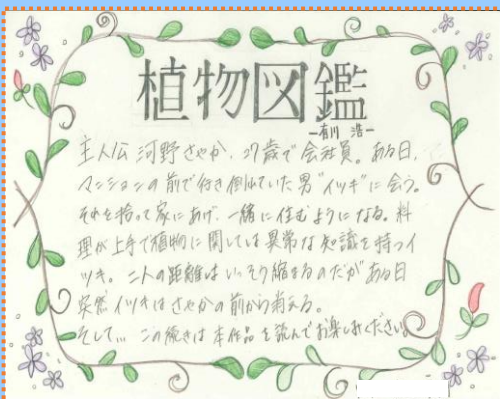 植物図鑑
-有川 浩-
主人公 河野さやか、27歳で会社員。ある日、
マンションの前で行き倒れていた男"イツキ"に会う。
それを拾って家にあげ、一緒に住むようになる。料
理が上手で植物に関しては異常な知識を持つイ
ツキ。二人の距離はいっそう縮まるのだがある日
突然イツキはさやかの前から消える。
そして… この続きは本作品を読んでお楽しみください。